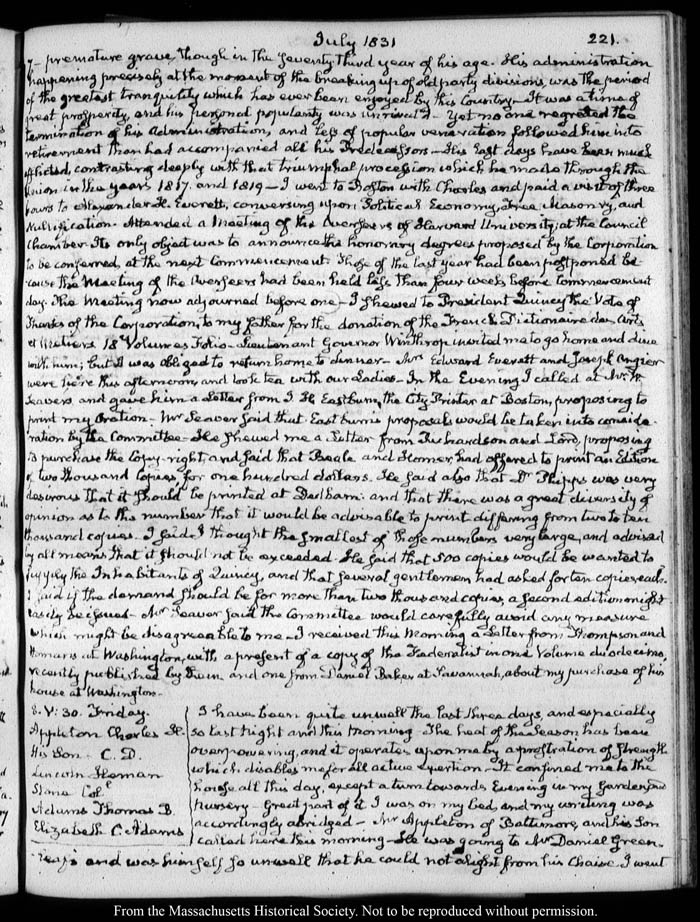 July 1831 221.
premature grave, though in the seventy third year of his age. His administration
happening precisely at the moment of the breaking up of old party divisions, was the period
of the greatest tranquility which has ever been enjoyed by this Country. It was a time of
great prosperity, and his personal popularity was unrivall'd. Yet no one regretted the
termination of his Administration, and less of popular veneration followed him into
retirement than had accompanied all his Predecessors. His last days have been much
afflicted, contrasting deeply with that triumphal procession which he made through the
Union in the years 1817. and 1819 — I went to Boston with Charles and paid a visit of three
hours to Alexander H. Everett, conversing upon Political Economy, Free Masonry, and
Nullification. Attended a Meeting of the Overseers of Harvard University, at the Council
Chamber. Its only object was to announce the honorary degrees proposed by the Corporation
to be conferred, at the next Commencement. Those of the last year had been postponed be
cause the Meeting of the Overseers had been held less than four weeks before commencement
day. The Meeting now adjourned before one — I shewed to President Quincy the Vote of
Thanks of the Corporation, to my father for the donation of the French Dictionaire des Arts
et Metiers 18 Volumes Folio — Lieutenant Governor Winthrop invited me to go home and dine
with him; but I was obliged to return home to dinner — Mrs Edward Everett and Joseph Angier
were here this afternoon, and took tea with our Ladies — In the Evening I called at Mr W.
Seavers and gave him a Letter from I. H. Eastburn, the City Printer at Boston, proposing to
print my Oration. Mr Seaver said that Eastburn's proposals would be taken into conside-
ration by the Committee — He shewed me a Letter from Richardson and Lord, proposing
to purchase the Copy-right, and said that Beale and Homer had offered to print an Edition
of two thousand Copies, for one hundred dollars. He said also that Dr Phipps was very
desirous that it should be printed at Dedham: and that there was a great diversity of
opinion as to the number that it would be advisable to print differing from two to ten
thousand copies. I said I thought the smallest of those numbers very large, and advised
by all means that it should not be exceeded. He said that 500 copies would be wanted to
supply the Inhabitants of Quincy, and that several gentlemen had asked for ten copies each.
I said if the demand should be for more than two thousand copies, a second edition might
easily be issued — Mr Seaver said the Committee would carefully avoid any measure
which might be disagreeable to me — I received this Morning a Letter from Thompson and
Homans at Washington, with a present of a copy of the Federalist in one Volume duodecimo,
recently published by them and one from Daniel Baker at Savannah, about my purchase of his
house at Washington.
8. V: 30. Friday.
Appleton Charles H.
His Son. C. D.
Lincoln Heman
Stone Col
Adams Thomas B.
Elizabeth C. Adams
I have been quite unwell the last three days, and especially
so last Night and this morning. The heat of the Season has been
overpowering, and it operates upon me by a prostration of strength
which disables me for all active exertion — It confined me to the
house all this day, except a turn towards Evening in my Garden and
Nursery — Great part of it I was on my bed, and my writing was
accordingly abridged — Mr Appleton of Baltimore, and his Son
called here this morning — He was going to Mr Daniel Green
leaf's and was himself so unwell that he could not alight from his Chaise. I went
From the Massachusetts Historical Society. Not to be reproduced without permission.